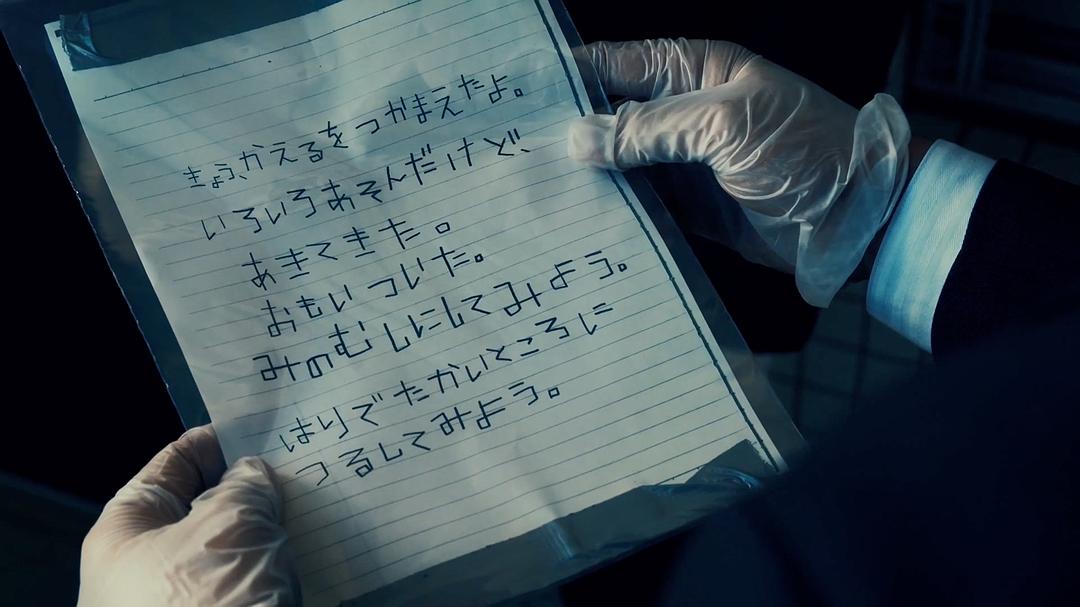 きょう、かえるをつかまえたよ。
いろいろあそんだけど、
あきてきた。
おもいついた。
みのむしにしてみよう。
はりでたかいところに
つるしてみよう。